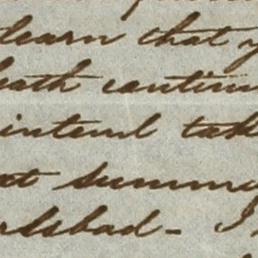 learn that y
eath continu
intend tak
at summe
rlsbad - I